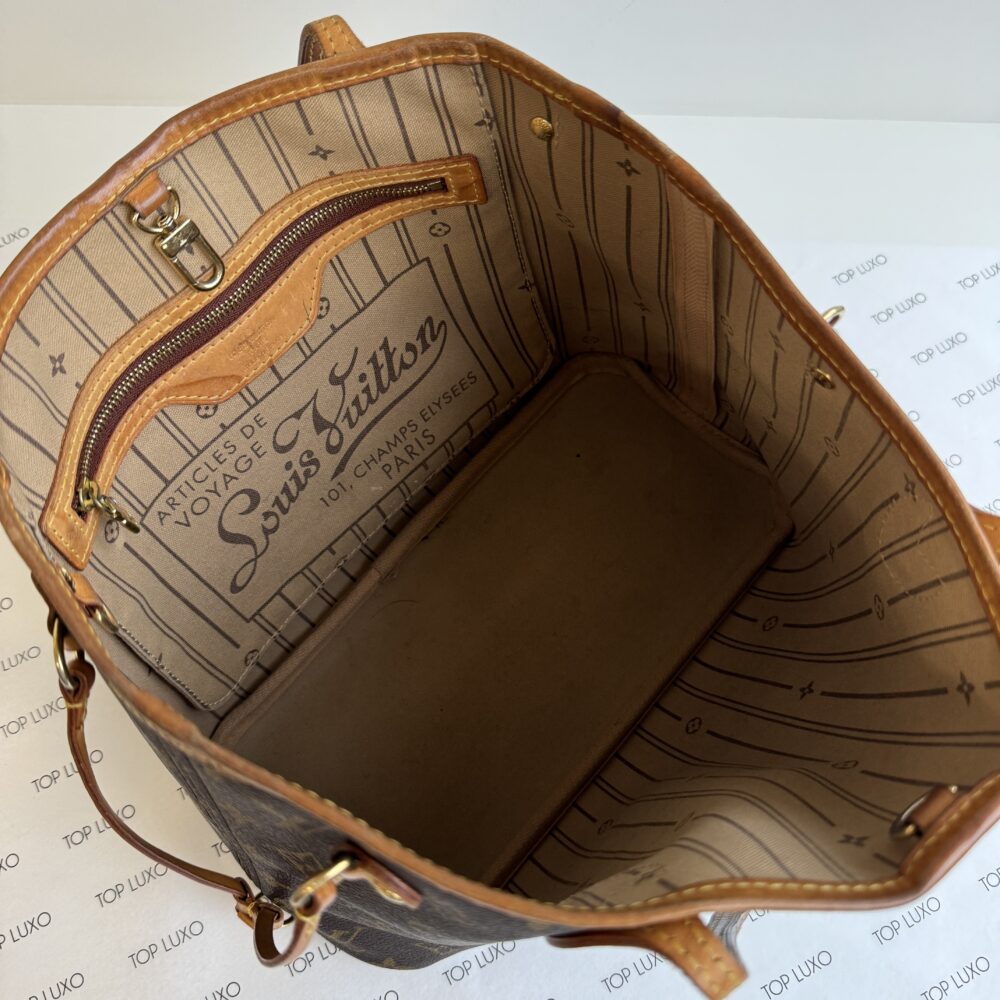 ARTICLES DE
VOYAGE
Louis Vuitton
101, CHAMPS ELYSEES
PARIS
TOP LUXO
TOP LUXO
TOP LUXO
TOP LUXO
TOP LUXO
TOP LUXO
TOP LUXO
TOP LUXO
TOP LUXO
TOP LUXO
TOP LUXO
TOP LUXO
TOP LUXO
TOP LUXO
TOP LUXO
TOP LUXO